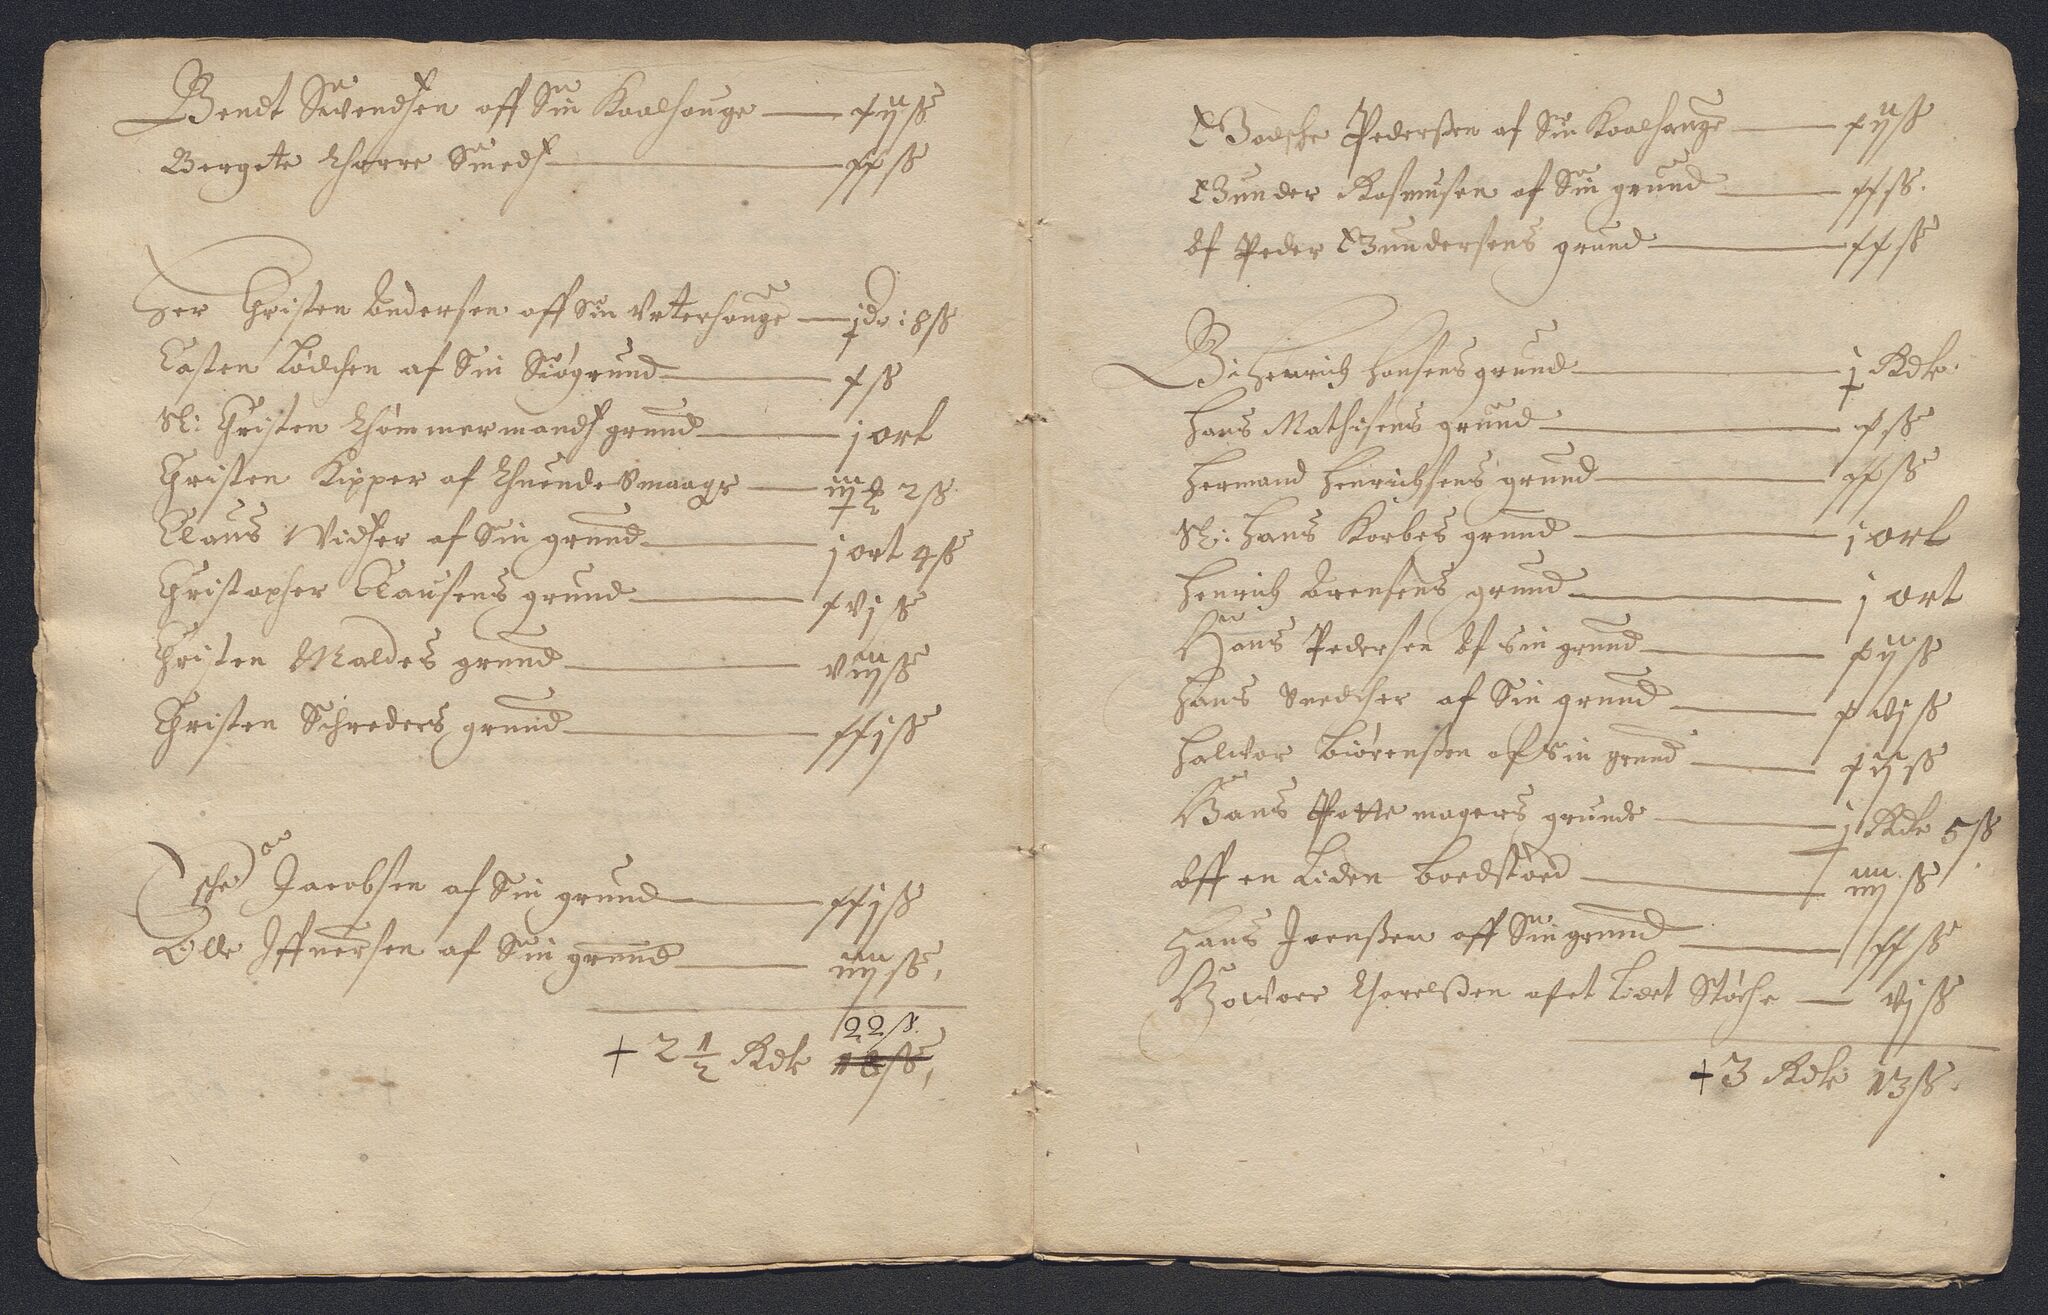 Bendt Svendsen off Sin Kaalhauge — xij ß
Birgete Thorre Smeds — xx ß
Her Christen Andersen off Sin Vrtehauge — j dr: 8 ß
Casten Lödchen af Sin Siögrund — x ß
Sl: Christen Thömmermands grund — j ort
Christen Kipper af Thuende Smaage — iij 2 ß
Claus Widser af Sin grund — j ort 4 ß
Christopher Clausens grund — xvj ß
Christen Maldes grund — viij ß
Christen Schreders grund — xxj ß
Jacobsen af Sin grund — xxj ß
Olle Iffuersen af Sin grund — iiij ß,
22 ß.
+ 2 1/2 Rdlr 18 ß,
Godsche Pederßen af Sin Kaalhauge — xij ß
Gunder Rasmusen af Sin grund — xx ß.
Af Peder Gundersens grund — xx ß
Henrich Hansens grund — j Rdlr.
Hans Mathisens grund — x ß
Hermand Henrichsens grund — xx ß
Sl: Hans Korbes grund — j ort
Henrich Arensens grund — j ort
Hans Pedersen Af sin grund — xij ß
Hans Snedcher af Sin grund — xvj ß
Halvor Biörenßen af Sin grund — xij ß
Hans Pottemagers grunde — j Rdlr 5 ß
Aff en Liden boedstoed — iiij ß
Hans Ivenßen off Sin grund — xx ß
Howor Thorelßen af et Lidet Stöche — vj ß
+ 3 Rdlr 13 ß.